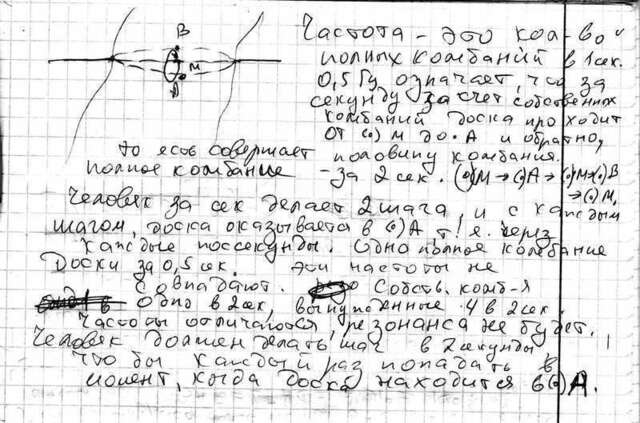 В
М
А
Частота - это кол-во
полных комбаний в 1 сек.
0,5 Гц означает, что за
секунду за счет собственных
комбаний доска проходит
от (·) М до ·А и обратно,
то есть совершает половину комбания.
полное комбание - за 2 сек. (·)М→(·)А→(·)М→(·)В
→(·)М.
Человек за сек делает 2 шага, и с каждым
шагом, доска оказывается в (·)А, т. е. через
каждые полсекунды. Одно полное комбание
Доски за 0,5 сек. Эти частоты не
Совпадают. Собств. комб-я
Одно в 2 сек, вынужденные 4 в 2 сек.
Частоты отличаются, резонанса не будет.
Человек должен делать шаг в 2 секунды
Что бы каждый раз попадать в
момент, когда доска находится в (·) А.